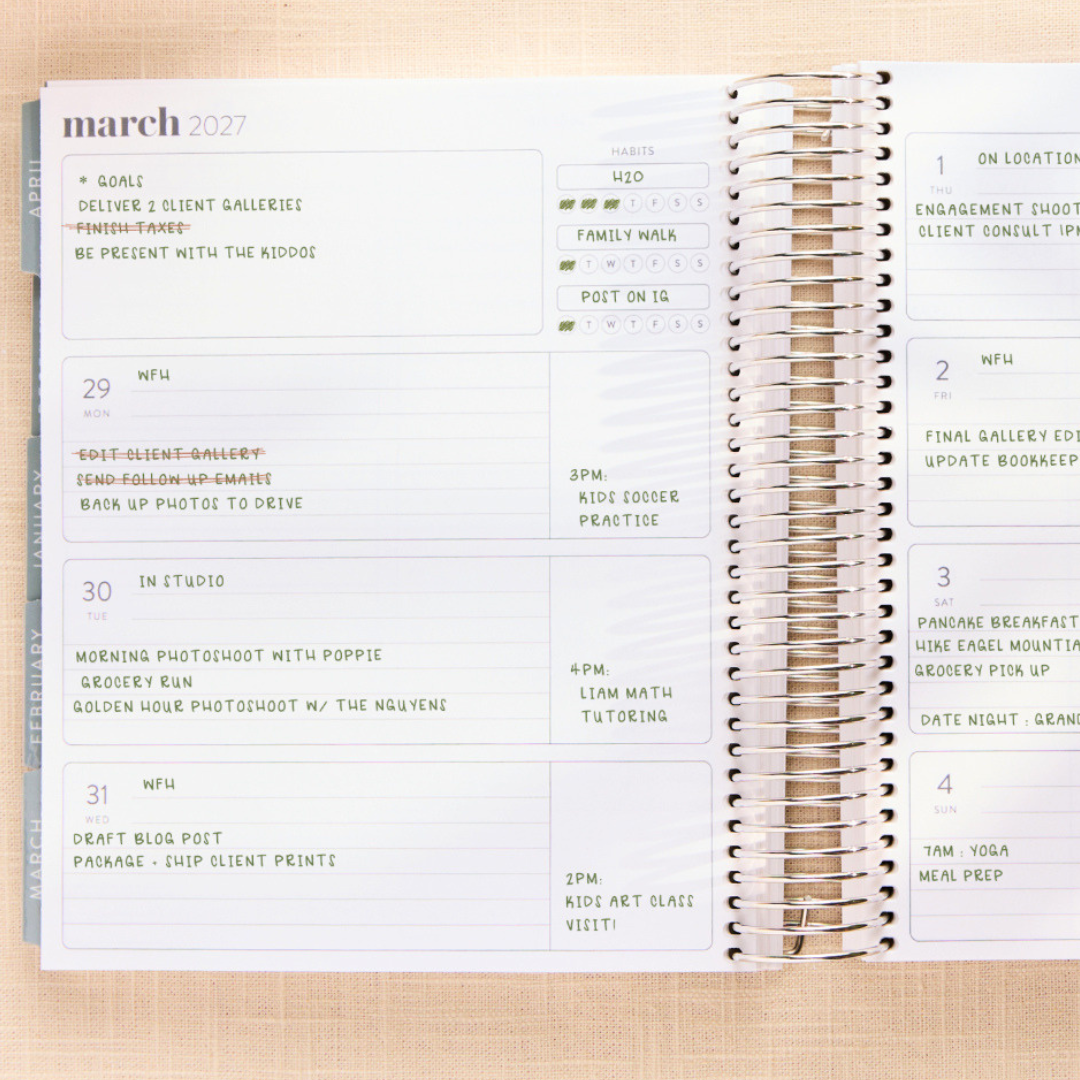 march 2027
* GOALS
DELIVER 2 CLIENT GALLERIES
FINISH TAXES
BE PRESENT WITH THE KIDDOS
HABITS
H2O
T F S S
FAMILY WALK
T W T F S S
POST ON IG
T W T F S S
29
MON
WFH
EDIT CLIENT GALLERY
SEND FOLLOW UP EMAILS
BACK UP PHOTOS TO DRIVE
3PM:
KIDS SOCCER
PRACTICE
30
TUE
IN STUDIO
MORNING PHOTOSHOOT WITH POPPIE
GROCERY RUN
GOLDEN HOUR PHOTOSHOOT W/ THE NGUYENS
4PM:
LIAM MATH
TUTORING
31
WED
WFH
DRAFT BLOG POST
PACKAGE + SHIP CLIENT PRINTS
2PM:
KIDS ART CLASS
VISIT!
1
THU
ON LOCATION
ENGAGEMENT SHOOT
CLIENT CONSULT 1PM
2
FRI
WFH
FINAL GALLERY EDI
UPDATE BOOKKEEP
3
SAT
PANCAKE BREAKFAST
HIKE EAGEL MOUNTIA
GROCERY PICK UP
DATE NIGHT : GRAN
4
SUN
7AM : YOGA
MEAL PREP
APRIL
JANUARY
FEBRUARY
MARCH